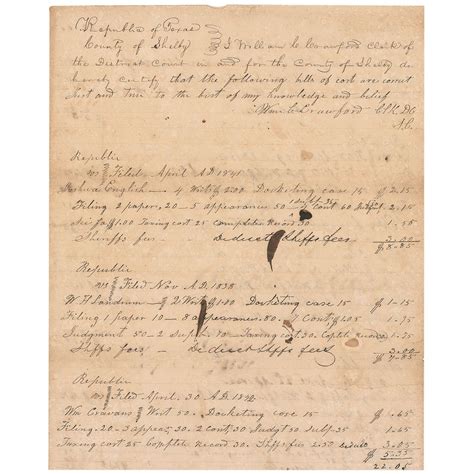 Republic of Texas
County of Shelby I William C Crawford Clerk of
the District Court in and for the County of Shelby do
hereby certify that the following bills of cost are correct
Just and true to the best of my knowledge and belief
Wm C Crawford Clk D C
S.C.
Republic
vs Filed April A.D. 1841
Joshua English — 4 Writs $2.00 Docketing case 15 $ 2.15
Filing 2 papers, 20 — 5 appearances 50 2.15
Taxing cost 25 Complete Record 1.55
Sheriffs fees — Deduct Shffs fees 3.00
$ 8.85
Republic
vs Filed Nov A.D. 1838
W H Landrum 2 Writs $1.00 Docketing case 15 $ 1.15
Filing 1 paper 10 — 8 appearances .80
Judgment 50 — 2 Taxing cost 30. 1.75
Shffs fees — Deduct Shffs fees 3.00
Republic
vs Filed April. 30 A.D. 1840
Wm Cravens Writ 50. Docketing case. 15 $ .65
Filing. 20 — 3 30. 2 cont 20. Judgt 50 1.65
Taxing cost 25 Complete Record 30. Shffs fees 2.50
5.35
22.05